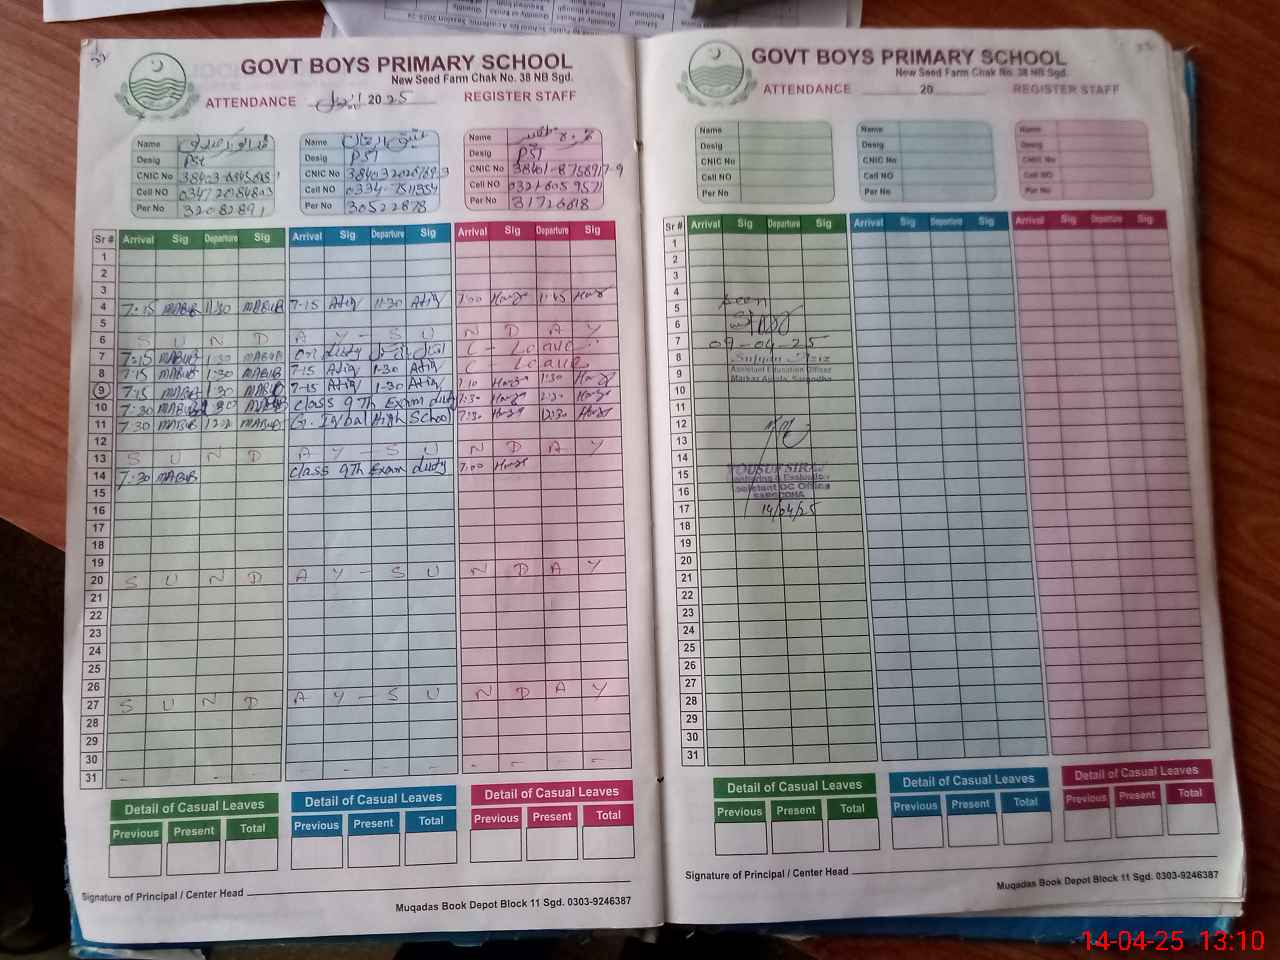 GOVT BOYS PRIMARY SCHOOL
New Seed Farm Chak No. 38 NB Sgd.
ATTENDANCE اپریل 2025 REGISTER STAFF
Name
Desig PST
CNIC No
Cell NO 03472084803
Per No 32082891
Name
Desig PST
CNIC No
Cell NO 0334-7511354
Per No 30522878
Name
Desig PST
CNIC No 38401-8758917-9
Cell NO 03216059571
Per No 31726618
Sr # Arrival Sig Departure Sig Arrival Sig Departure Sig Arrival Sig Departure Sig
1
2
3
4 7:15 MABUB 11:30 MABUB 7-15 Atiq 11-30 Atiq 7:00 11:45
5
6 S U N D A Y - S U N D A Y
7 7:15 MABUB 1:30 MABUB on duty C - Leave
8 7:15 MABUB 1:30 MABUB 7-15 Atiq 1-30 Atiq C - Leave
9 7:15 MABUB 1:30 MABUB 7-15 Atiq 1-30 Atiq 7:10 1:30
10 7:30 MABUB 1:30 MABUB class 9Th Exam duty 7:30
11 7:30 MABUB MABUB G. Iqbal High School 7:30 12:30
12
13 S U N D A Y - S U N D A Y
14 7:30 MABUB class 9Th Exam duty 7:00
15
16
17
18
19
20 S U N D A Y - S U N D A Y
21
22
23
24
25
26
27 S U N D A Y - S U N D A Y
28
29
30
31
Detail of Casual Leaves
Previous Present Total
Detail of Casual Leaves
Previous Present Total
Detail of Casual Leaves
Previous Present Total
Signature of Principal / Center Head
Muqadas Book Depot Block 11 Sgd. 0303-9246387
GOVT BOYS PRIMARY SCHOOL
New Seed Farm Chak No. 38 NB Sgd.
ATTENDANCE 20 REGISTER STAFF
Name
Desig
CNIC No
Cell NO
Per No
Name
Desig
CNIC No
Cell NO
Per No
Name
Desig
CNIC No
Cell NO
Per No
Sr # Arrival Sig Departure Sig Arrival Sig Departure Sig Arrival Sig Departure Sig
1
2
3
4
5 Seen
6
7 09-04-25
8
9 Assistant Education Officer
Markaz Sargodha
10
11
12
13
14
15 YOUSUF
16 SARGODHA
17 14/04/25
18
19
20
21
22
23
24
25
26
27
28
29
30
31
Detail of Casual Leaves
Previous Present Total
Detail of Casual Leaves
Previous Present Total
Detail of Casual Leaves
Previous Present Total
Signature of Principal / Center Head
Muqadas Book Depot Block 11 Sgd. 0303-9246387
14-04-25 13:10